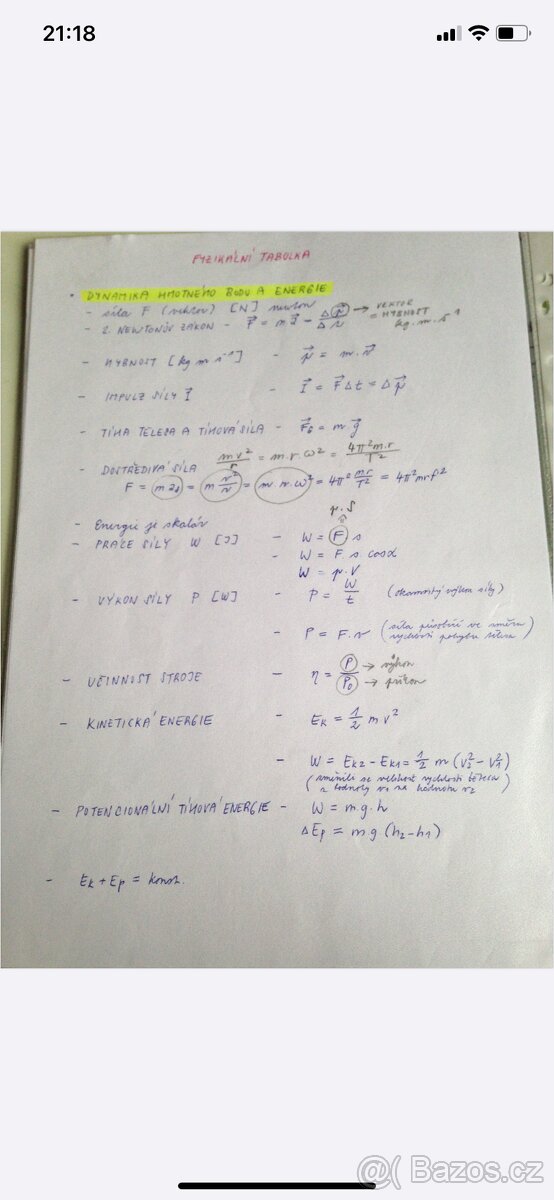 21:18
FYZIKÁLNÍ TABULKA
• DYNAMIKA HMOTNÉHO BODU A ENERGIE
- síla F (vektor) [N] newton
- 2. NEWTONŮV ZÁKON - F⃗ = m a⃗ = Δp⃗/Δt → VEKTOR = HYBNOST kg.m.s⁻¹
- HYBNOST [kg m s⁻¹] - p⃗ = m.v⃗
- IMPULZ SÍLY I⃗ - I⃗ = F⃗Δt = Δp⃗
- TÍHA TĚLESA A TÍHOVÁ SÍLA - F⃗G = m.g⃗
- DOSTŘEDIVÁ SÍLA mv²/r = m.r.ω² = 4π²m.r/T²
F = m ad = m v²/r = m.r.ω² = 4π² mr/T² = 4π²mrf²
- Energie je skalár
p.S
- PRÁCE SÍLY W [J] - W = F s
- W = F s cosα
W = p.V
- VÝKON SÍLY P [W] - P = W/t (okamžitý výkon síly)
- P = F.v (síla působící ve směru rychlosti pohybu tělesa)
- ÚČINNOST STROJE - η = P/P₀ → výkon → příkon
- KINETICKÁ ENERGIE - Ek = 1/2 m v²
- W = Ek2 - Ek1 = 1/2 m (v₂² - v₁²)
(změnili se velikost rychlosti tělesa z hodnoty v₁ na hodnotu v₂)
- POTENCIONÁLNÍ TÍHOVÁ ENERGIE - W = m.g.h
ΔEp = m g (h₂-h₁)
- Ek + Ep = konst.
@( Bazos.cz